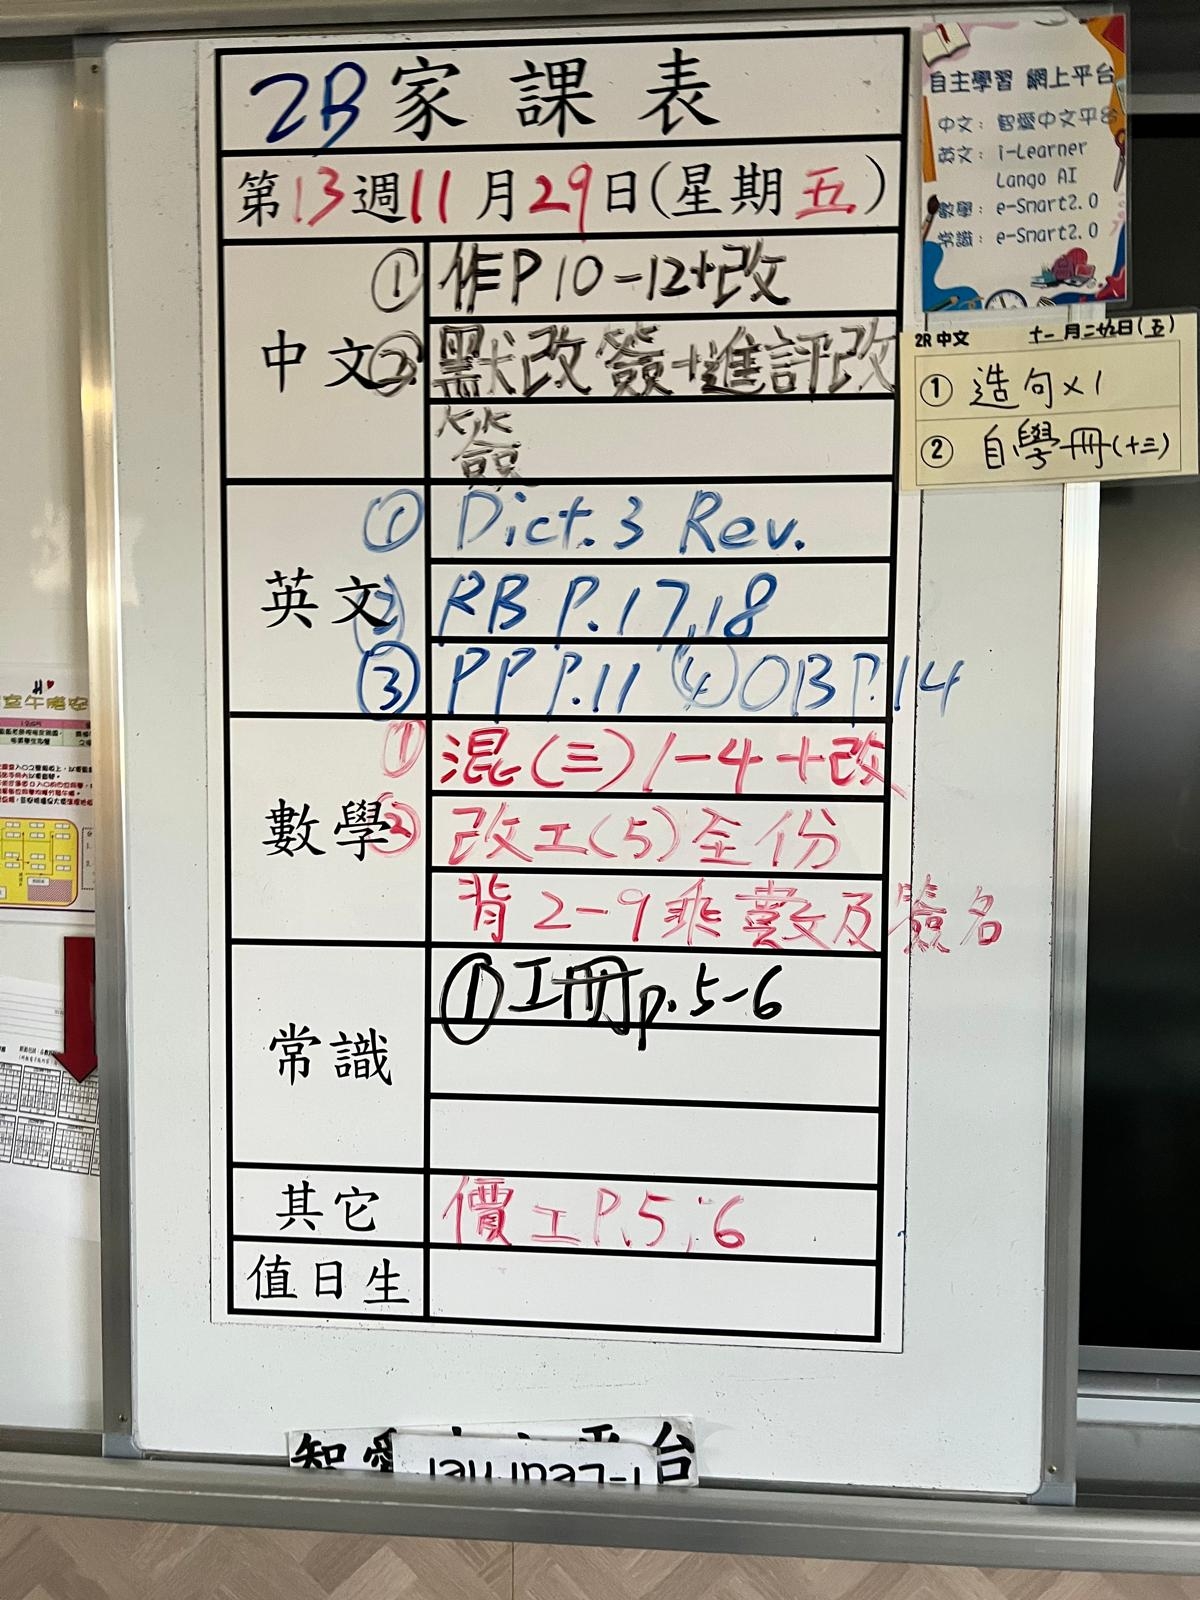 2B家課表
第13週11月29日(星期五)
中文
① 作P10-12+改
② 默改簽+進評改
簽
英文
① Dict.3 Rev.
② RB P.17,18
③ PP P.11 ④ OB P.14
數學
① 混(三)1-4+改
② 改工(5)全份
背2-9乘數及簽名
常識
① 工冊p.5-6
其它
價工P.5;6
值日生
自主學習 網上平台
中文：智愛中文平台
英文：i-Learner
Lango AI
數學：e-Smart2.0
常識：e-Smart2.0
2R中文 十一月二九日(五)
① 造句x1
② 自學冊(十三)
智愛
台
i-Learner